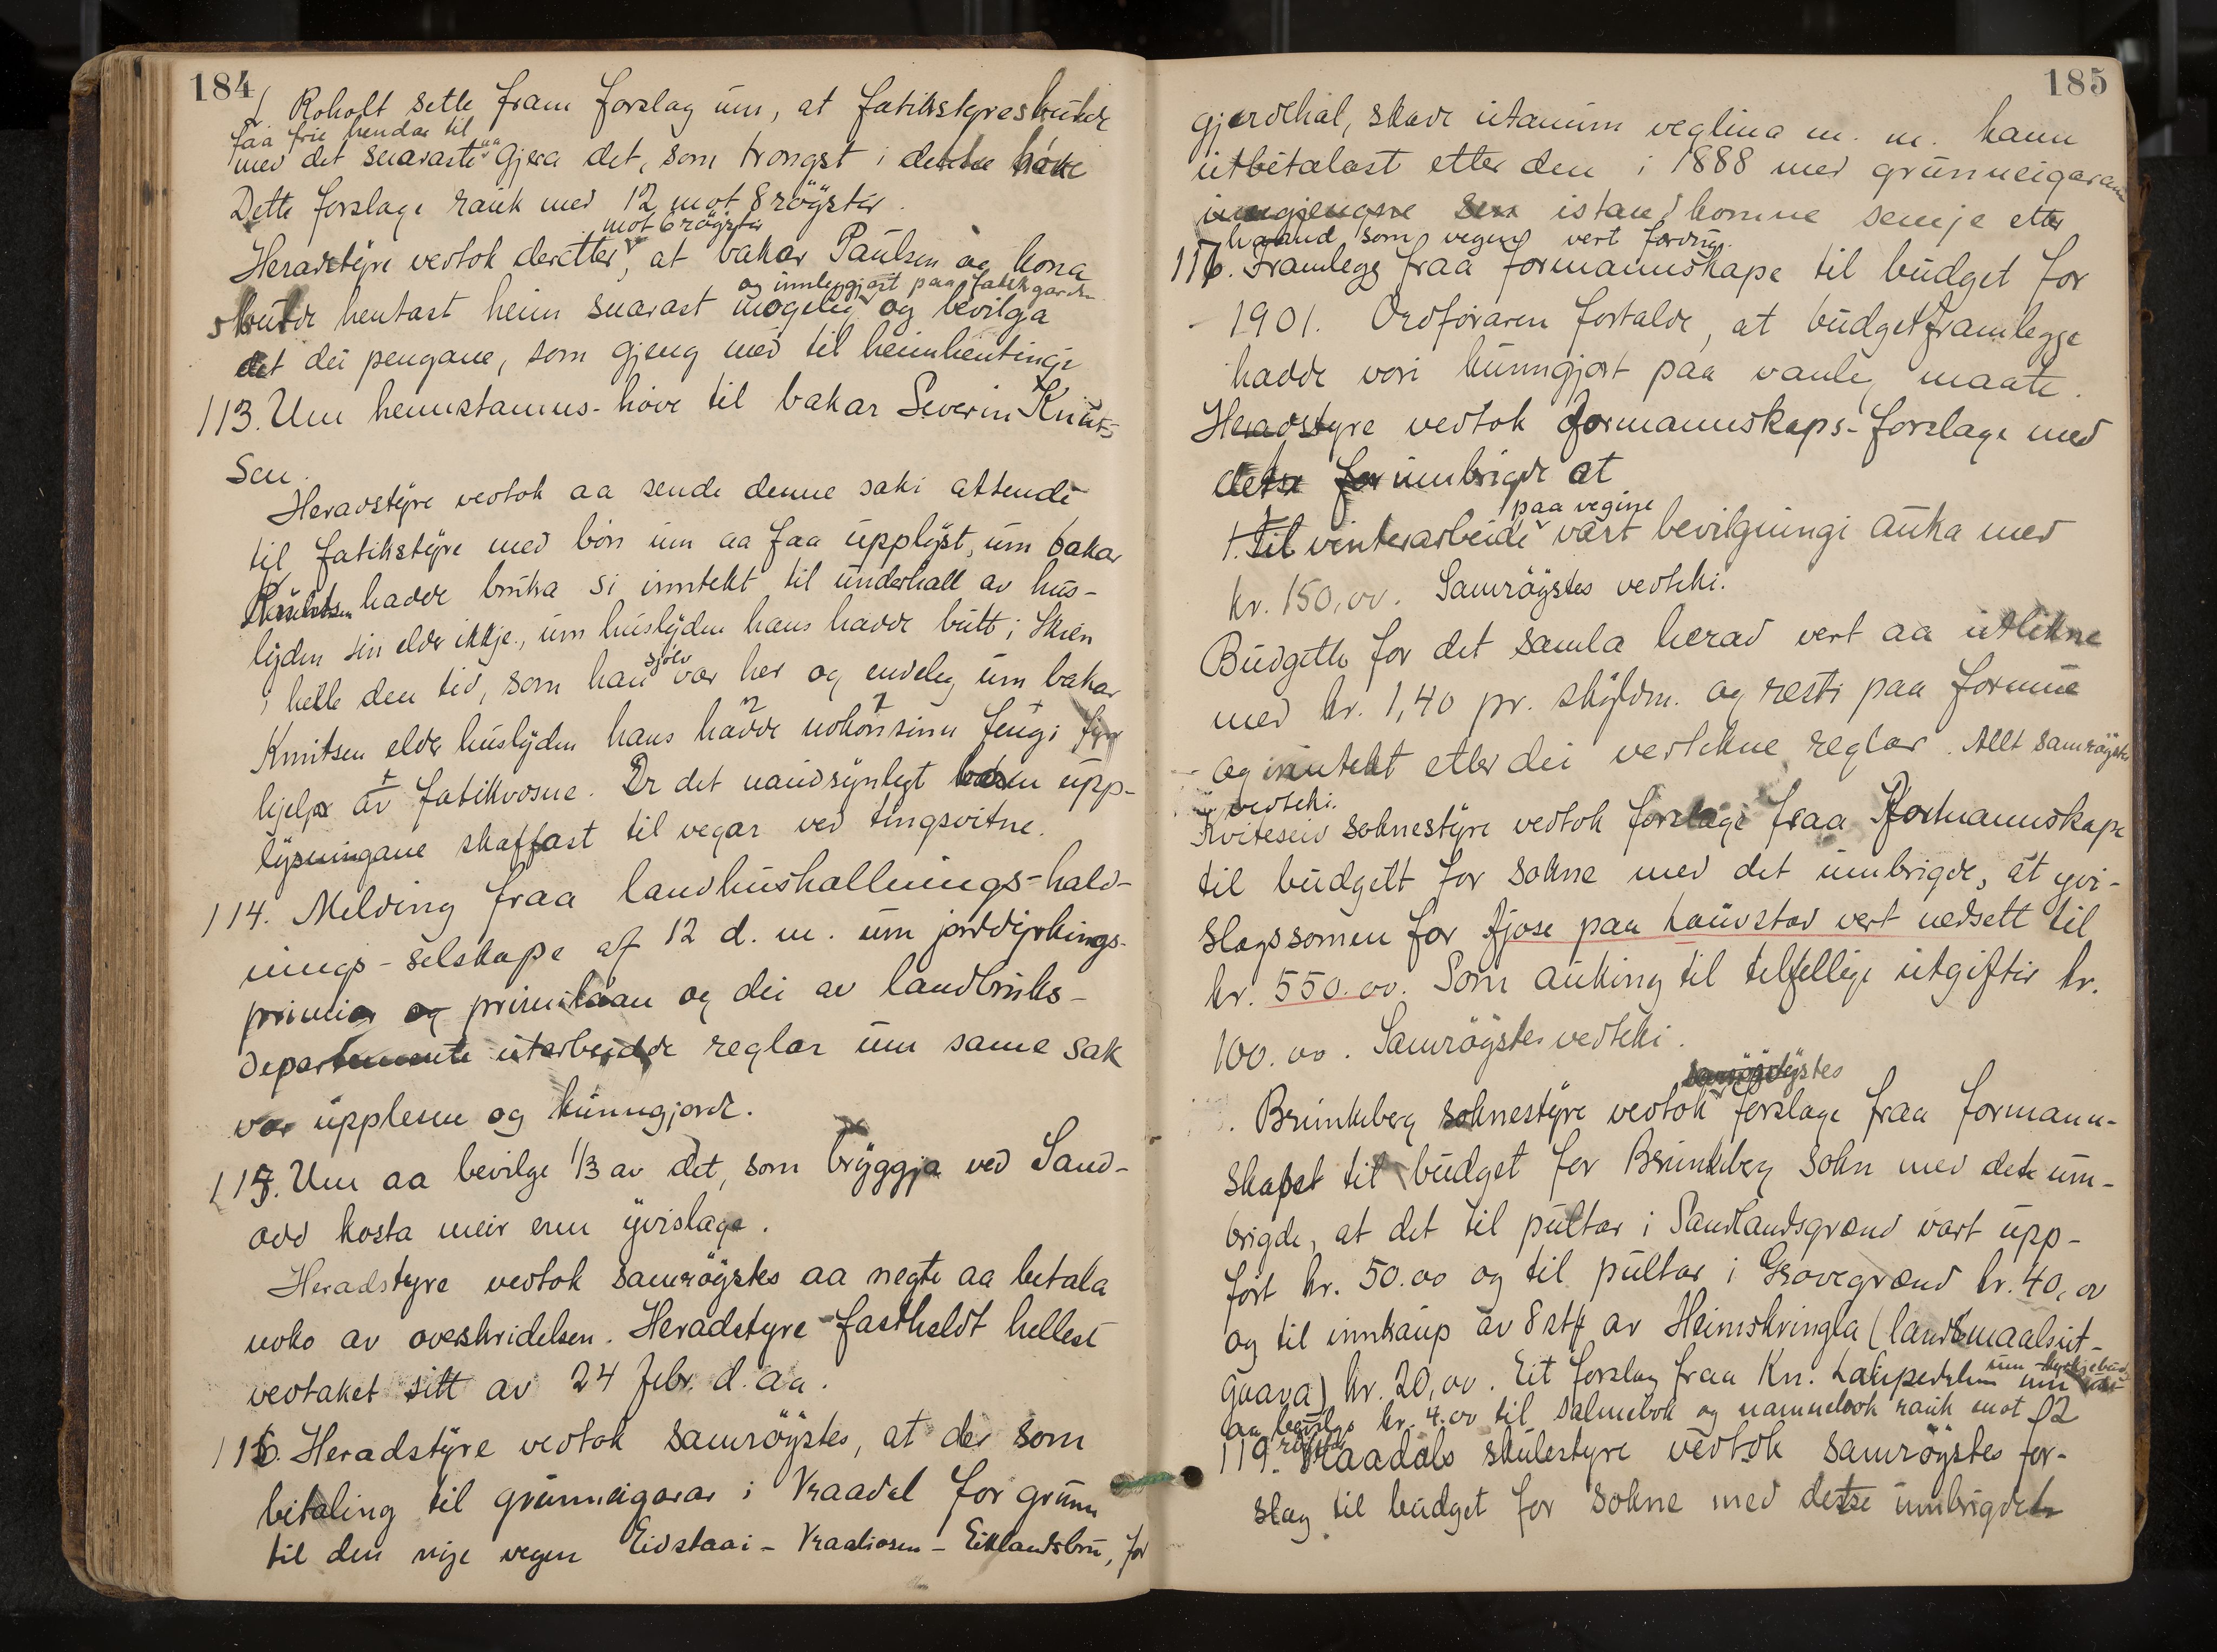 184
J. Roholt sette fram forslag um, at fatikstyret skulde
faa frie hendar til
med det snaraste aa gjera det, som trongst i
Dette forslage rauk med 12 mot 8 röyster.
mot 6 röyster
Heradstyre vedtok deretter, at bakar Paulsen og kona
og innleggjast paa fatikgarden
skulde hentast heim snarast mogeleg og bevilga
det dei pengane, som gjeng med til heimhentingi
113. Um heimstamns-höve til bakar Severin Knut-
sen.
Heradstyre vedtok aa sende denne saki attende
til fatikstyre med bön um aa faa upplyst, um bakar
Knutsen hadde bruka si inntekt til underhall av hus-
lyden sin elder ikkje, um huslyden hans hadde butt i Skien
sjölv
i heile den tid, som han var her og endeleg um bakar
Knutsen elder huslyden hans hadde nokonsinn fengi fyrr
hjelp av fatikvosne. Er det naudsynlegt upp-
lysningane skaffast til vegar ved tingsvitne.
114. Melding fraa landhushallnings-hald-
nings-selskape af 12 d. m. um jorddyrkings-
premiar og premielaan og dei av landbruks-
departemente utarbeidde reglar um same sak
var upplesne og kunngjorde.
115. Um aa bevilge 1/3 av det, som bryggja ved Sand-
odd kosta meir enn yvislage.
Heradstyre vedtok samröystes aa negte aa betala
noko av overskridelsen. Heradstyre fastheldt hellest
vedtaket sitt av 24 febr. d. aa.
116. Heradstyre vedtok samröystes, at dei som
betaling til grunneigarar i Vraadal for grunn
til den nye vegen Eidstaai - Vraaliosen - Eiklandsbru, for
185
gjerdehal, skade utanum veglina m. m. kann
utbetalast etter den i 1888 med grunneigarane
inngjengne istandkomne semje etter
haand som vegen vert ferdug.
117. Framlegg fraa formannskape til budget for
1901. Ordföraren fortalde, at budgetframlegge
hadde vori kunngjort paa vanleg maate.
Heradstyre vedtok formannskaps-forslage med
desse umbrigde at
paa vegine
1. til vinterarbeide vart bevilgningi auka med
kr. 150,00. Samröystes vedteki.
Budgette for det samla herad vert aa utlikne
med kr. 1,40 pr. skyldm. og resti paa formue
og inntekt etter dei vedtekne reglar. Allt samröystes
vedteki.
Kviteseid soknestyre vedtok forslage fraa formannskape
til budgett for sokne med det umbrigde, at yvi-
slagssomen for fjose paa Kauvstad vert nedsett til
kr. 550.00. Som auking til telfellige utgiftir kr.
100.00. Samröystes vedteki.
samröystes
Brunkeberg soknestyre vedtok forslage fraa formann-
skapet til budget for Brunkeberg sokn med dete um-
brigde, at det til pultar i Sandlandsgrend vart upp-
fört kr. 50.00 og til pultar i Grovegrend kr. 40,00
og til innkaup av 8 stk av Heimskringla (landsmaalsut-
gaava) kr. 20,00. Eit forslag fraa Kn. um
aa bevilge kr. 4.00 til salmebok og namnebok rauk mot 12
röyster
119. Vraadals skulestyre vedtok samröystes for-
slag til budget for sokne med desse umbrigde